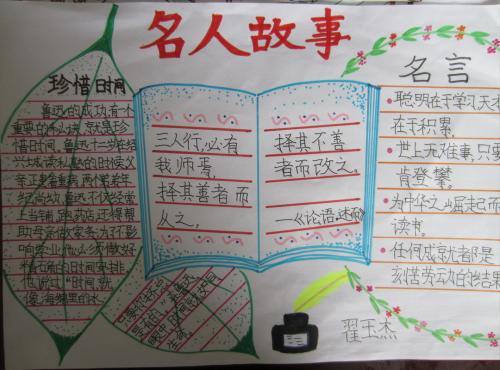 名人故事
珍惜时间
鲁迅的成功,有一个
重要的秘诀,就是珍
惜时间。鲁迅十二岁在绍
兴城读私塾的时候,父
亲正患着重病,两个弟弟年
纪尚幼,鲁迅不仅经常
上当铺,跑药店,还得帮
助母亲做家务;为不影
响学业,他必须做好
精确的时间安排。
三人行,必有
我师焉,
择其善者而
从之,
择其不善
者而改之。
——《论语·述而》
名言
聪明在于学习,天才
在于积累。
世上无难事,只要
肯登攀。
为中华之崛起而
读书。
任何成就都是
刻苦劳动的结果
翟玉杰